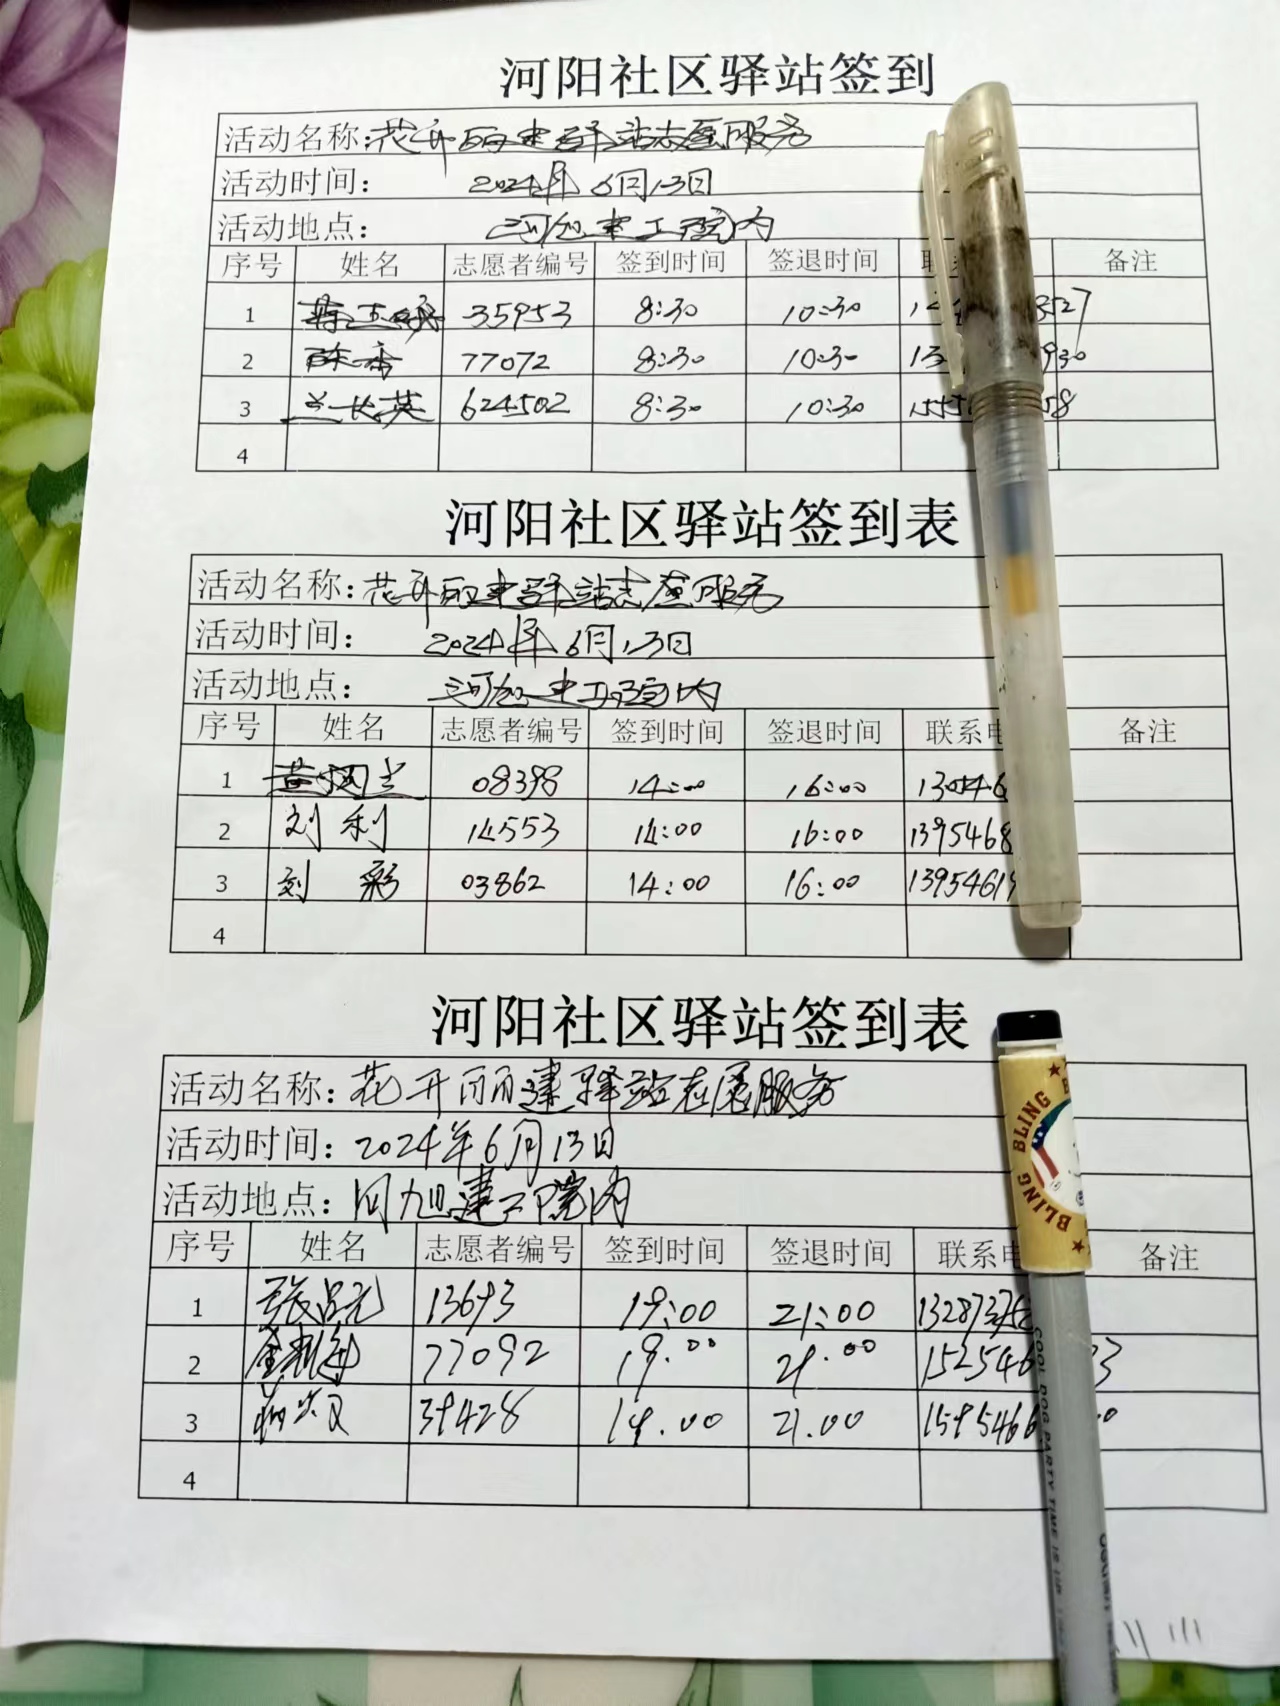 河阳社区驿站签到
活动名称:花开丽建驿站志愿服务
活动时间: 2024年6月13日
活动地点: 河旭建工院内
序号 姓名 志愿者编号 签到时间 签退时间 备注
1 35953 8:30 10:30
2 陈香 77072 8:30 10:30
3 兰长英 624502 8:30 10:30
4
河阳社区驿站签到表
活动名称:花开丽建驿站志愿服务
活动时间: 2024年6月13日
活动地点: 河旭建工院内
序号 姓名 志愿者编号 签到时间 签退时间 联系电 备注
1 08398 14:00 16:00
2 刘利 14553 14:00 16:00 1395468
3 刘彩 03862 14:00 16:00 1395461
4
河阳社区驿站签到表
活动名称:花开丽建驿站志愿服务
活动时间:2024年6月13日
活动地点:同旭建工院内
序号 姓名 志愿者编号 签到时间 签退时间 联系电 备注
1 张吕元 13693 19:00 21:00 1328737
2 77092 19:00 21:00 152546
3 39428 19.00 21.00 1595466
4
BLING BLING
COOL DOG PARTY TIME